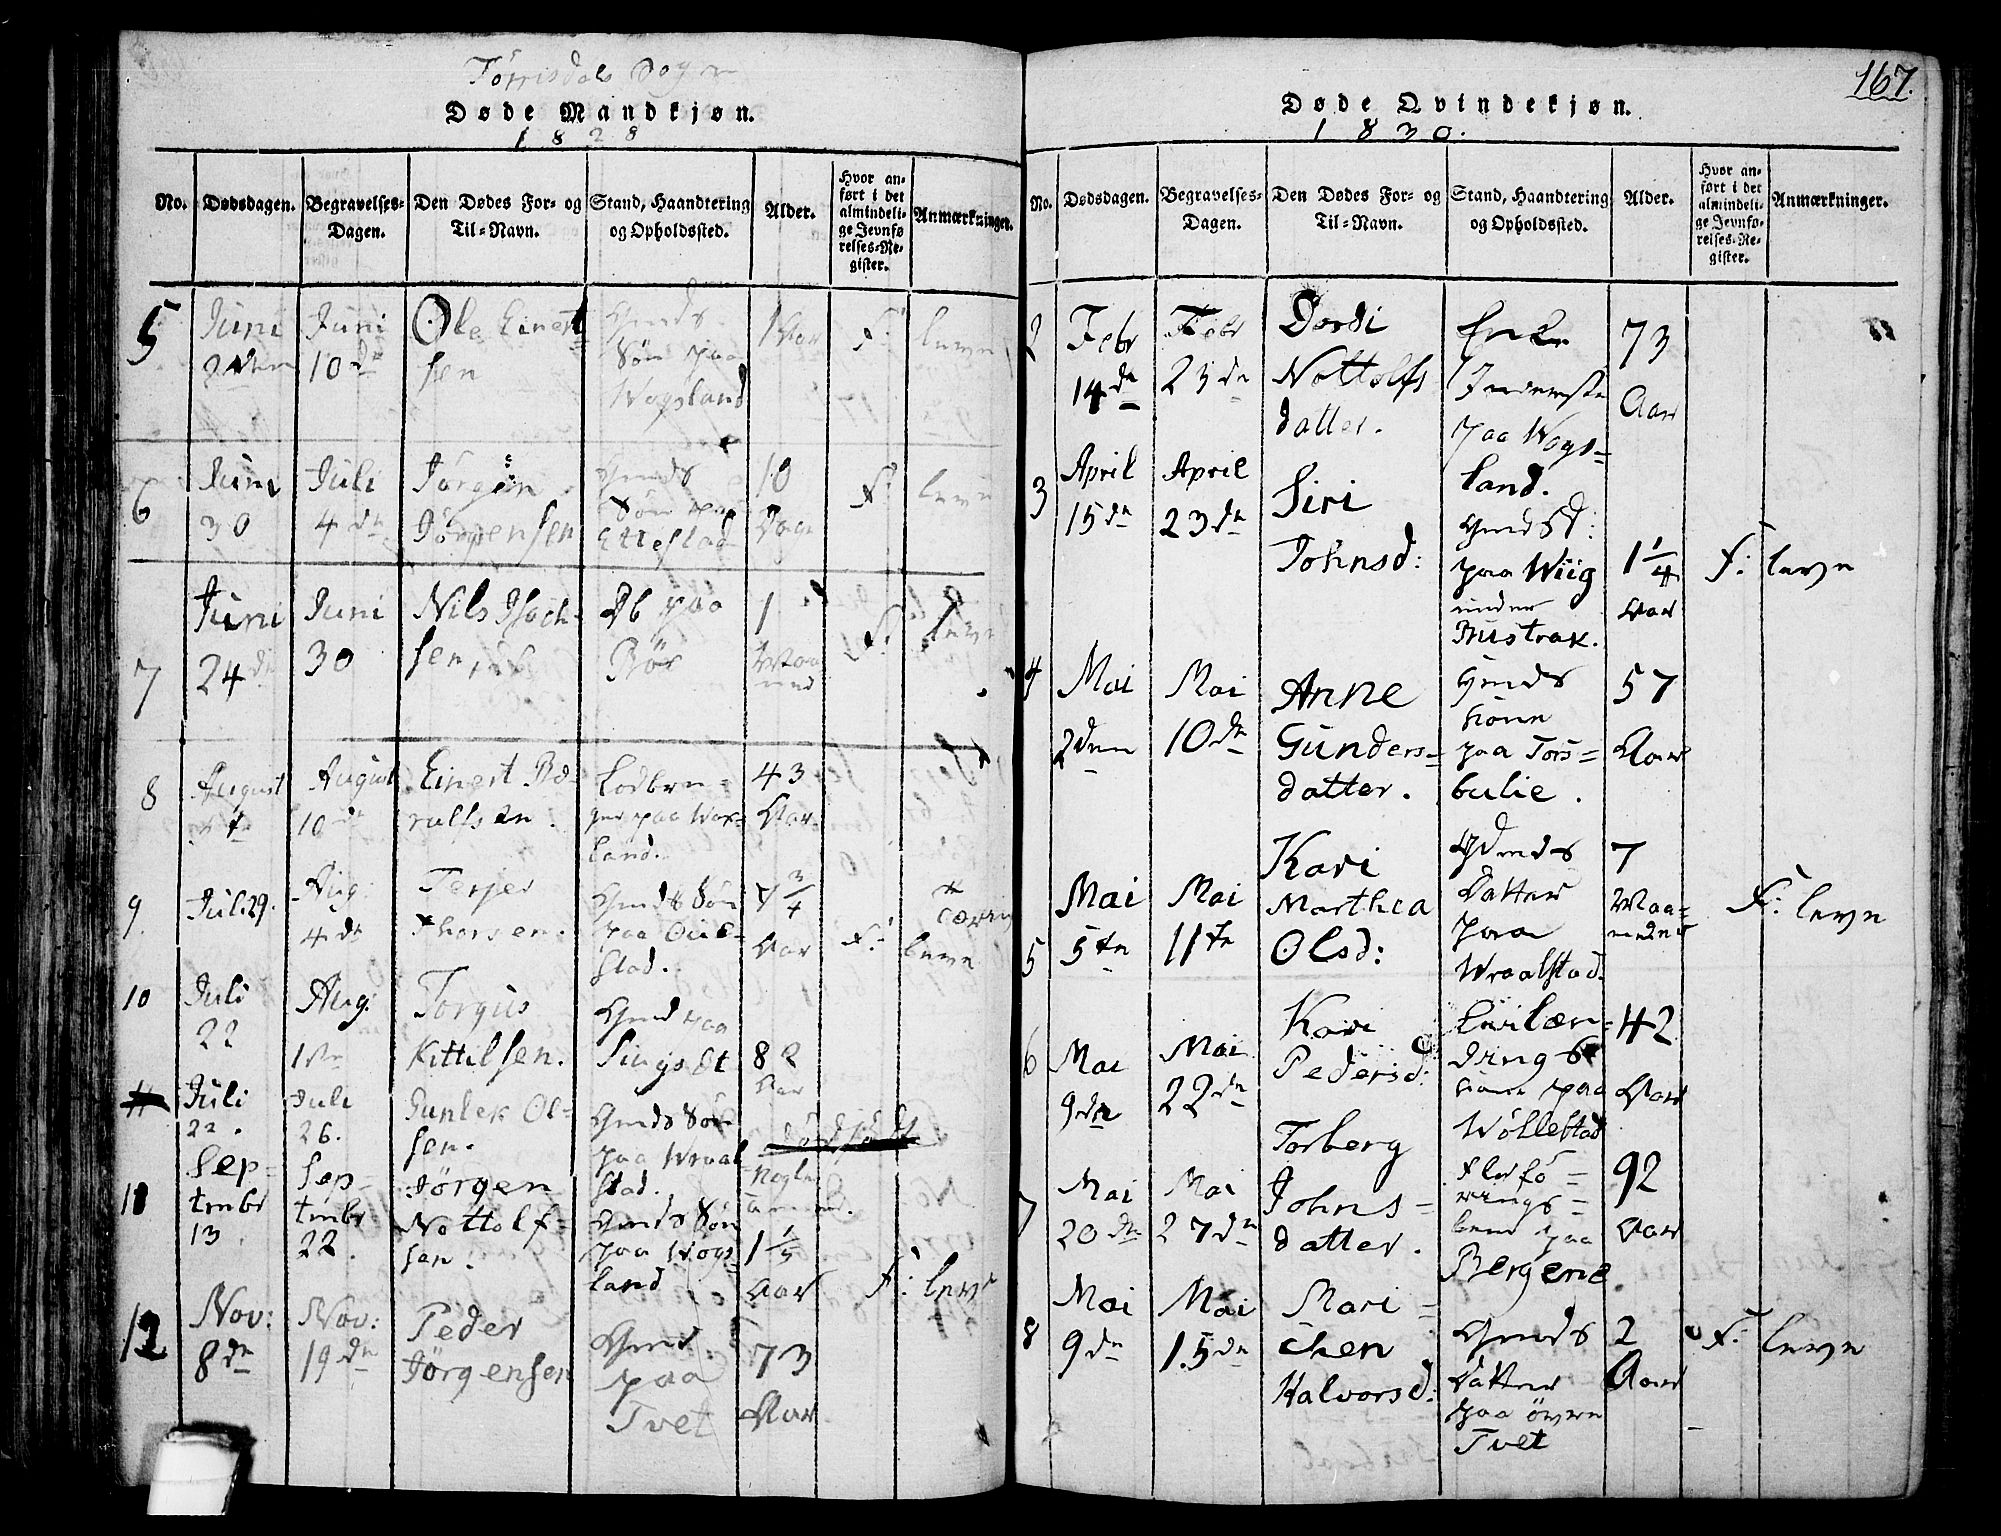 Tørrisdals Sogn
Døde Mandkjøn.
1828
No.
Dødsdagen.
Begravelses-
Dagen.
Den Dødes For- og
Til-Navn.
Stand, Haandtering
og Opholdssted.
Alder.
Hvor an-
ført i det
almindeli-
ge Jevnfø
relses-Re-
gister.
Anmærkninger.
5
Juni
Juni
10de
Ole Einert
sen
Gmds
Søn paa
Wogsland
1 Aar
F:
leve
6
Juni
30
Juli
4de
Jørgen
Jørgensen
Gmds
Søn paa
Ettestad
10
Dage
F:
leve
7
Juni
24de
Juni
30
Nils Isach-
sen,
paa
Bör
1
Maa
ned
F:
leve
8
August
August
10de
Einert Bø-
rulfsen.
Lodbru-
ger paa Wox-
land.
43
Aar.
9.
Juli 29.
Aug:
4de
Terjer
Thorsen.
Gmds Søn
paa Ouil-
stad.
7 3/4
Aar
F:
leve
10
Juli
22
Aug:
1ste
Torgus
Kittilsen.
Gmd paa
82
Aar
11
Juli
22.
Juli
26.
Gunlek Ol-
sen.
Gmds Søn
paa Wraal
stad.
dødfødt
Nogle
11
Sep-
tembr
13
Sep-
tembr
22.
Jørgen
Nottolf-
sen.
Gmds Søn
paa Wogs-
land
1 1/5
Aar
F:
leve
12
Nov:
8de
Nov:
19de
Peder
Jørgensen
Gmd.
paa
Tvet
73
Aar
167.
Døde Qvindekjøn.
1830.
No.
Dødsdagen.
Begravelses-
Dagen.
Den Dødes For- og
Til-Navn.
Stand, Haandtering
og Opholdssted.
Alder.
Hvor an-
ført i det
almindeli-
ge Jevnfø-
relses-Re-
gister.
Anmærkninger.
2
Febr
14de
Febr
23de
Dordi
Nottolfs
datter.
Enke
Inderste
paa Wogs=
land.
73
Aar
3
April
15de
April
23de
Siri
Johnsd:
Gmdsd:
paa Wiig
under
Bustrak.
1 1/4
Aar
F:
leve
4
Mai
2den
Mai
10de
Anne
Gunders-
datter.
Gmds
kone
paa Tors=
bulie.
57
Aar
5
Mai
5te
Mai
11te
Kari
Marthea
Olsd:
Gmds
Datter
paa
Wraalstad.
7
Maa=
neder
F:
leve
6
Mai
9de
Mai
22de
Kari
Pedersd:
kone paa
Wöllestad
42
Aar
7
Mai
20de
Mai
27de
Torberg
Johns-
datter.
Flodfö=
rings=
lem paa
Bergene.
92
Aar
8
Mai
9de
Mai
15de
Mari-
chen
Halvorsd:
Gmds
Datter
paa övre
Tvet
2
Aar
F:
leve